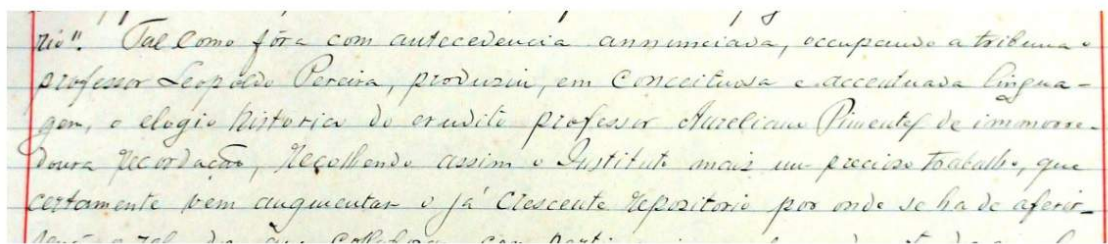 rio". Tal como fôra com antecedencia annunciada, occupando a tribuna o
professor Leopoldo Pereira, produziu, em conceituosa e accentuada lingua-
gem, o elogio historico do erudito professor Aureliano Pimentel de immorre-
doura recordação, recolhendo assim o Instituto mais um precioso trabalho, que
certamente vem augmentar o já crescente repositorio por onde se ha de aferir-